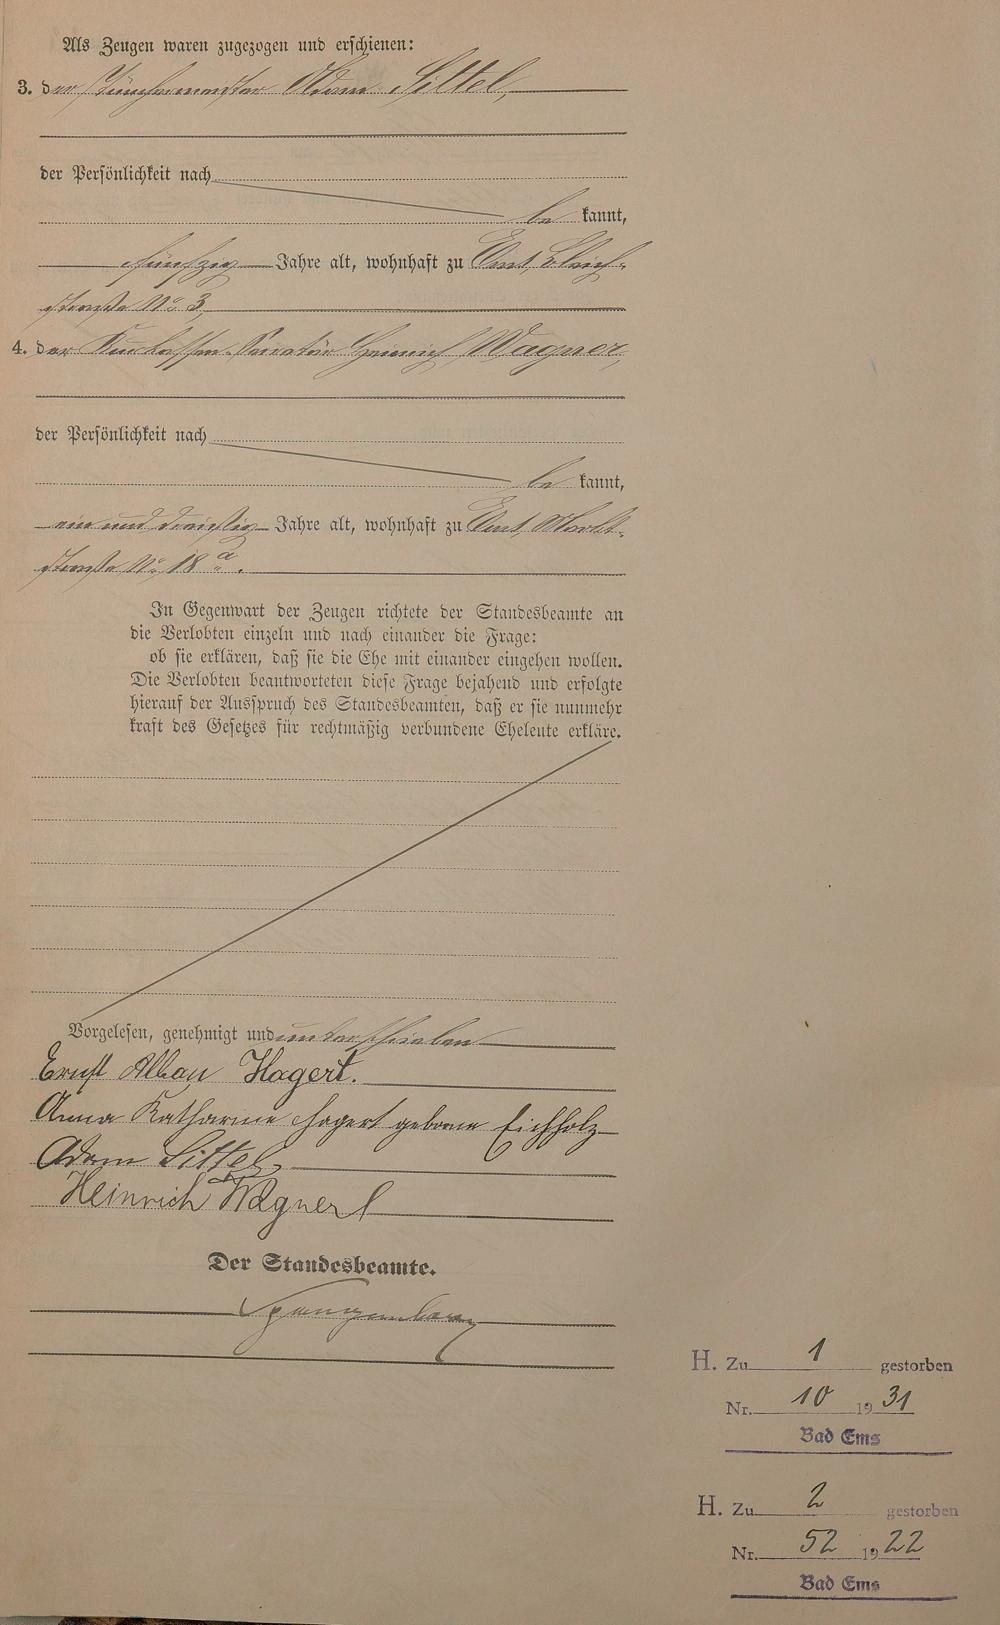 Als Zeugen waren zugezogen und erschienen:
3. der Tünchermeister Adam Sittel,
der Persönlichkeit nach
be kannt,
fünfzig Jahre alt, wohnhaft zu Ems, Bleich-
straße No 3,
4. der Kurkassen-Secretär Heinrich Wagner,
der Persönlichkeit nach
be kannt,
ein und dreißig Jahre alt, wohnhaft zu Ems, Markt-
straße No 18 a.
In Gegenwart der Zeugen richtete der Standesbeamte an
die Verlobten einzeln und nach einander die Frage:
ob sie erklären, daß sie die Ehe mit einander eingehen wollen.
Die Verlobten beantworteten diese Frage bejahend und erfolgte
hierauf der Ausspruch des Standesbeamten, daß er sie nunmehr
kraft des Gesetzes für rechtmäßig verbundene Eheleute erkläre.
Vorgelesen, genehmigt und unterschrieben
Ernst Alban Hagert.
Anna Katharine Hagert geborne Eichholz
Adam Sittel,
Heinrich Wagner
Der Standesbeamte.
Spangenberg
H. Zu 1 gestorben
Nr. 10 1931
Bad Ems
H. Zu 2 gestorben
Nr. 52 1922
Bad Ems